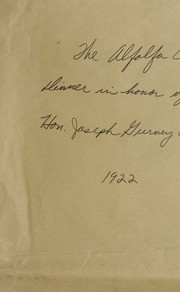 The Alfalfa C
dinner in honor of
Hon. Joseph Gurney
1922